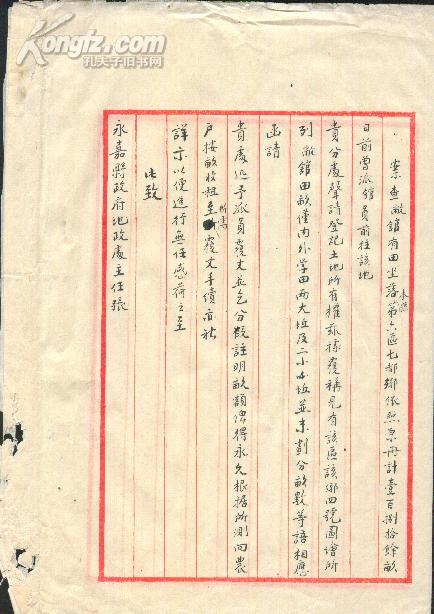 Kongfz.com
孔夫子旧书网
案查敝館有田坐落本縣第六區七都鄉依照原冊計壹百捌拾餘畝
日前曾派館員前往該地
貴分處聲請登記土地所有權玆據覆稱見有該區該鄉四號圖繪所
列敝館田畝僅內外学田兩大坵及二小坵並未劃分畝數等語相應
函請
貴處迅予派員覆丈並乞分段註明畝額俾得永久根據所測向農
戶按畝收租至所需覆丈手續亦祈
詳示以便進行無任感荷之至
此致
永嘉縣政府地政處主任張